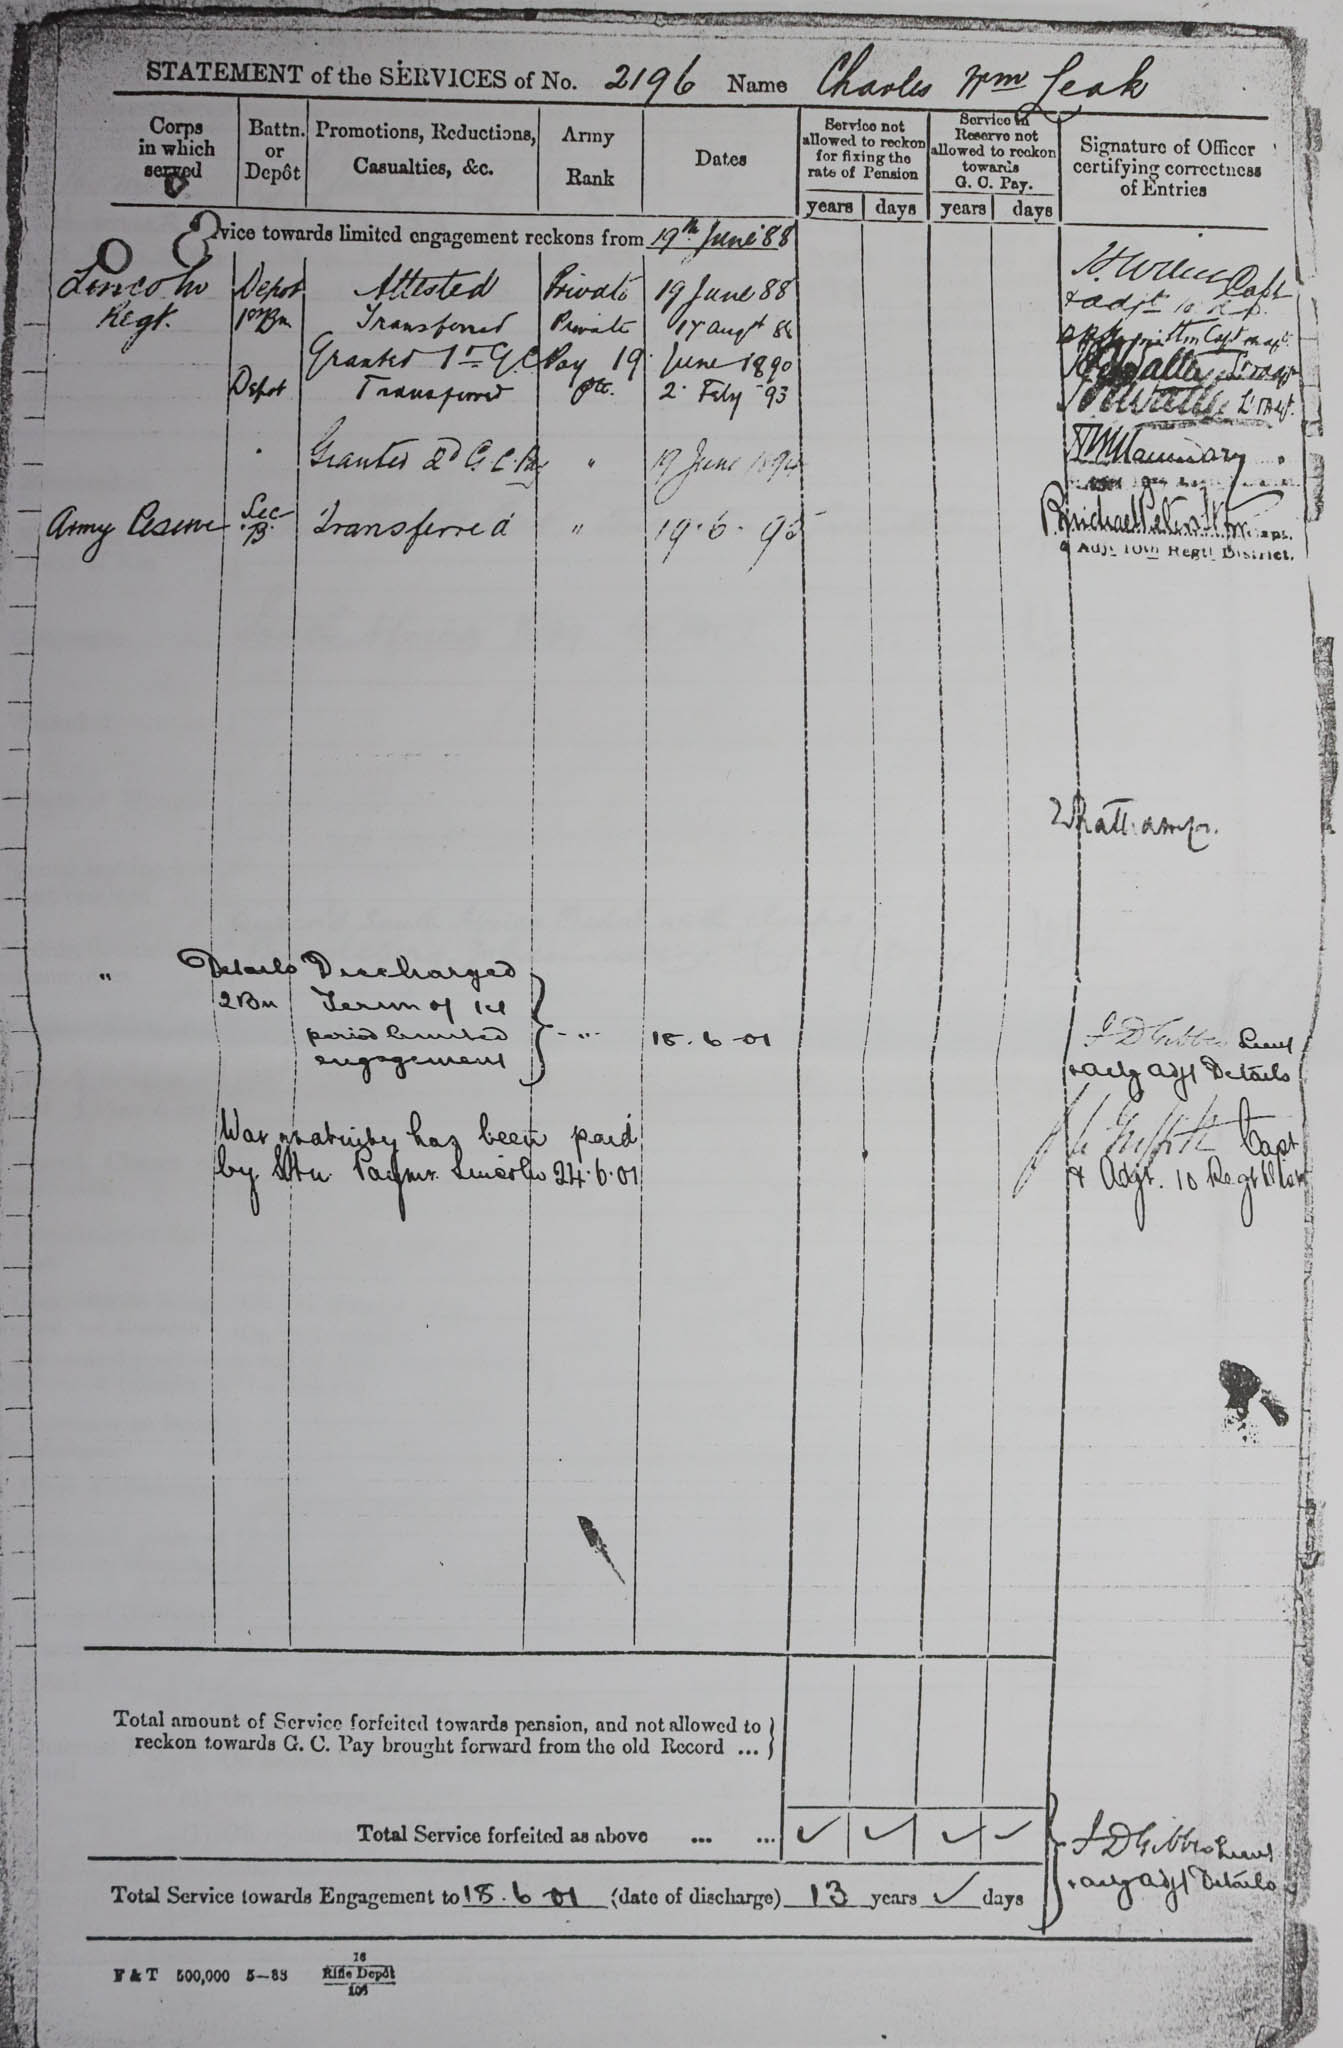 STATEMENT of the SERVICES of No. 2196 Name Charles Wm Leak
Corps in which served
Battn. or Depôt
Promotions, Reductions, Casualties, &c.
Army Rank
Dates
Service not allowed to reckon for fixing the rate of Pension
Service in Reserve not allowed to reckon towards G. C. Pay.
Signature of Officer certifying correctness of Entries
years days years days
vice towards limited engagement reckons from 19th June '88
Lincoln Depot Attested Private 19 June 88 Capt
Regt. 1st Bn Transferred Private 17 augst 88 & adjt
Granted 1st G C Pay 19 June 1890 Capt
Depot Transferred Pte. 2 Feby 93
" Granted 2d G. C. Pay " 19 June 1894
Army Reserve Sec B. Transferred " 19 . 6 . 95 Capt.
& Adjt 10th Regtl District.
" Details Discharged
2 Bn Term of 1st
period limited " 18 . 6 - 01 Lieut
engagement & actg adjt Details
War gratuity has been paid Capt
by Stn. Paymr. Lincoln 24.6.01 & Adjt. 10 Regt Dist
Total amount of Service forfeited towards pension, and not allowed to
reckon towards G. C. Pay brought forward from the old Record ...
Total Service forfeited as above ... ... ✓ ✓ ✓ ✓ J D Gibbes Lieut
Total Service towards Engagement to 18 . 6 - 01 (date of discharge) 13 years ✓ days & actg adjt Details
F & T 500,000 5—88 16
Rifle Depôt
105